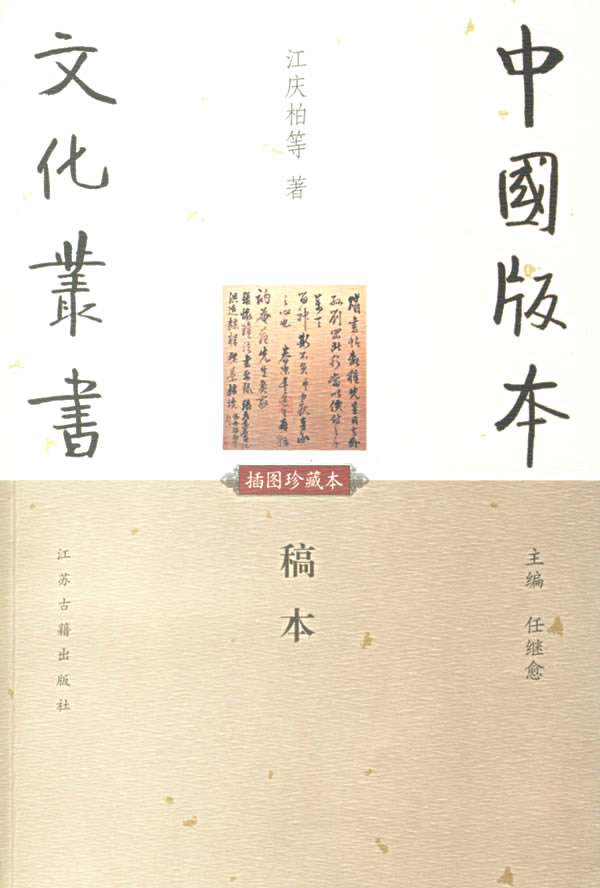 中國版本
文化叢書
江庆柏等 著
插图珍藏本
稿本
主编 任继愈
江苏古籍出版社